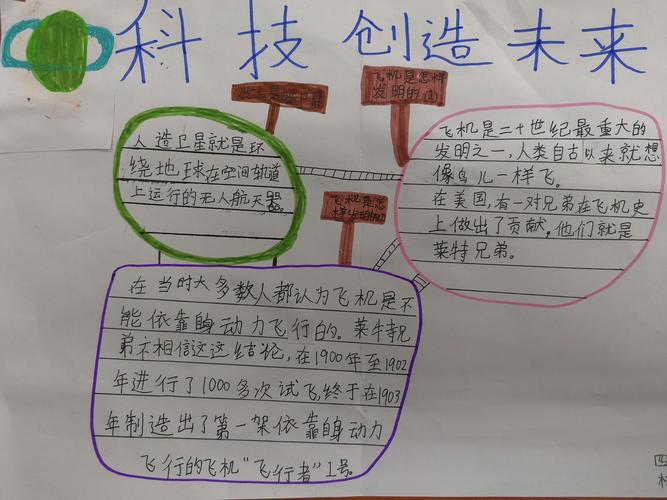 科技创造未来
飞机是怎样
发明的(1)
人造卫星就是环
绕地球在空间轨道
上运行的无人航天器。
飞机是二十世纪最重大的
发明之一,人类自古以来就想
像鸟儿一样飞。
在美国,有一对兄弟在飞机史
上做出了贡献,他们就是
莱特兄弟。
飞机是怎
在当时大多数人都认为飞机是不
能依靠自身动力飞行的。莱特兄
弟不相信这这结论,在1900年至1902
年进行了1000多次试飞,终于在1903
年制造出了第一架依靠自身动力
飞行的飞机“飞行者”1号。
四